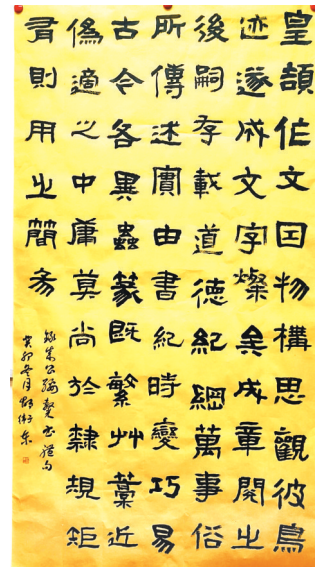 皇頡作文囙物構思觀彼鳥
迹遂成文字燦矣成章閱之
後嗣存載道德紀綱萬事俗
所傳述實由書紀時變巧易
古今各異蟲篆既繁艸藁近
偽適之中庸莫尚於隸規矩
有則用之簡易
錄成公綏隸書體句
癸卯冬月